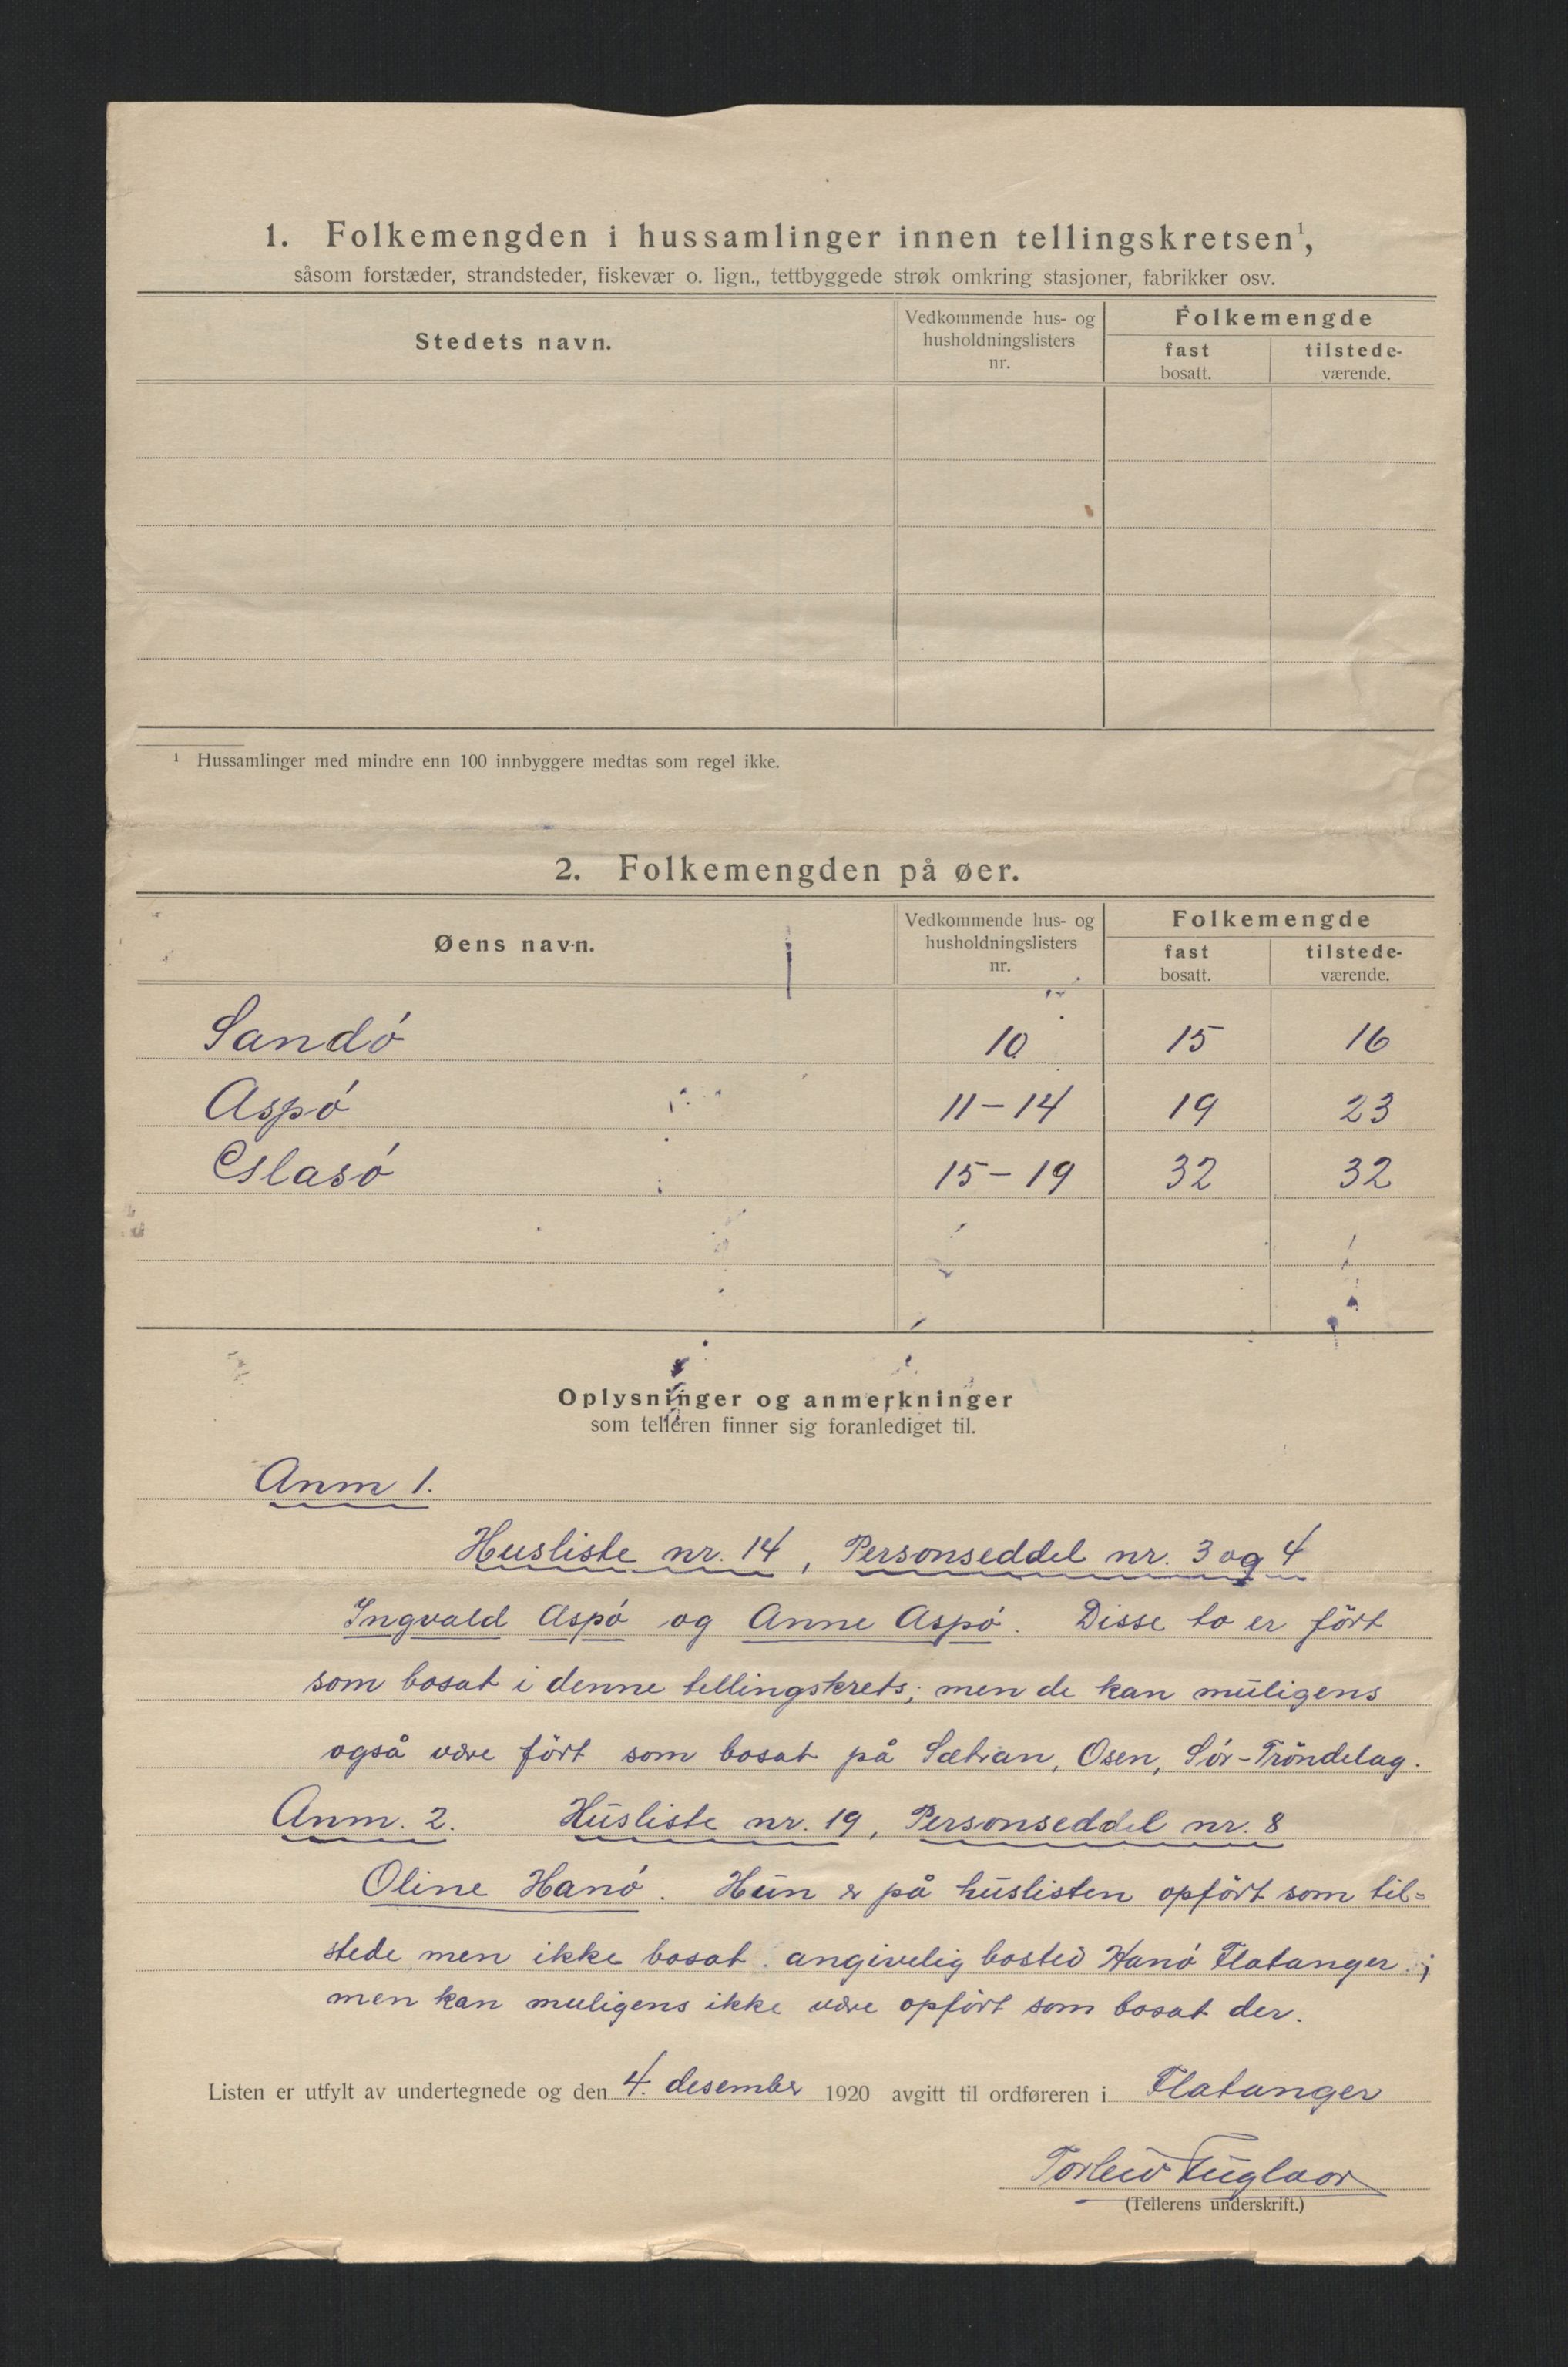 1. Folkemengden i hussamlinger innen tellingskretsen¹,
såsom forstæder, strandsteder, fiskevær o. lign., tettbyggede strøk omkring stasjoner, fabrikker osv.
Stedets navn.
Vedkommende hus- og husholdningslisters nr.
Folkemengde
fast bosatt.
tilstede-værende.
¹ Hussamlinger med mindre enn 100 innbyggere medtas som regel ikke.
2. Folkemengden på øer.
Øens navn.
Vedkommende hus- og husholdningslisters nr.
Folkemengde
fast bosatt.
tilstede-værende.
Sandó 10 15 16
Aspó 11-14 19 23
15-19 32 32
Oplysninger og anmerkninger
som telleren finner sig foranlediget til.
Anm 1.
Husliste nr. 14, Personseddel nr. 3 og 4
Ingvald Aspó og Anne Aspó. Disse to er fört
som bosat i denne tellingskrets; men de kan muligens
også være fört som bosat på Sætran, Osen, Sór-Tröndelag.
Anm. 2. Husliste nr. 19, Personseddel nr. 8
Oline Hanó. Hun er på huslisten opfört som til=
stede men ikke bosat. angivelig bosted Hanó Flatanger;
men kan muligens ikke være opfört som bosat der.
Listen er utfylt av undertegnede og den 4. desember 1920 avgitt til ordføreren i Flatanger
(Tellerens underskrift.)